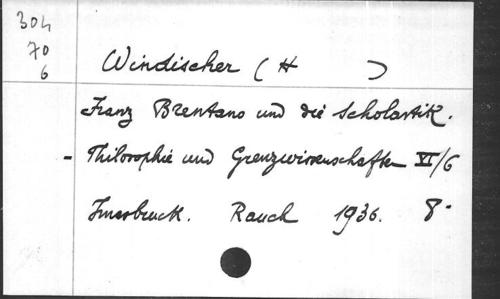 304
70
6
Windischer ( H )
Franz Brentano und die Scholastik.
- Philosophie und Grenzwissenschaften VI/6
Innsbruck. Rauch 1936. 8°